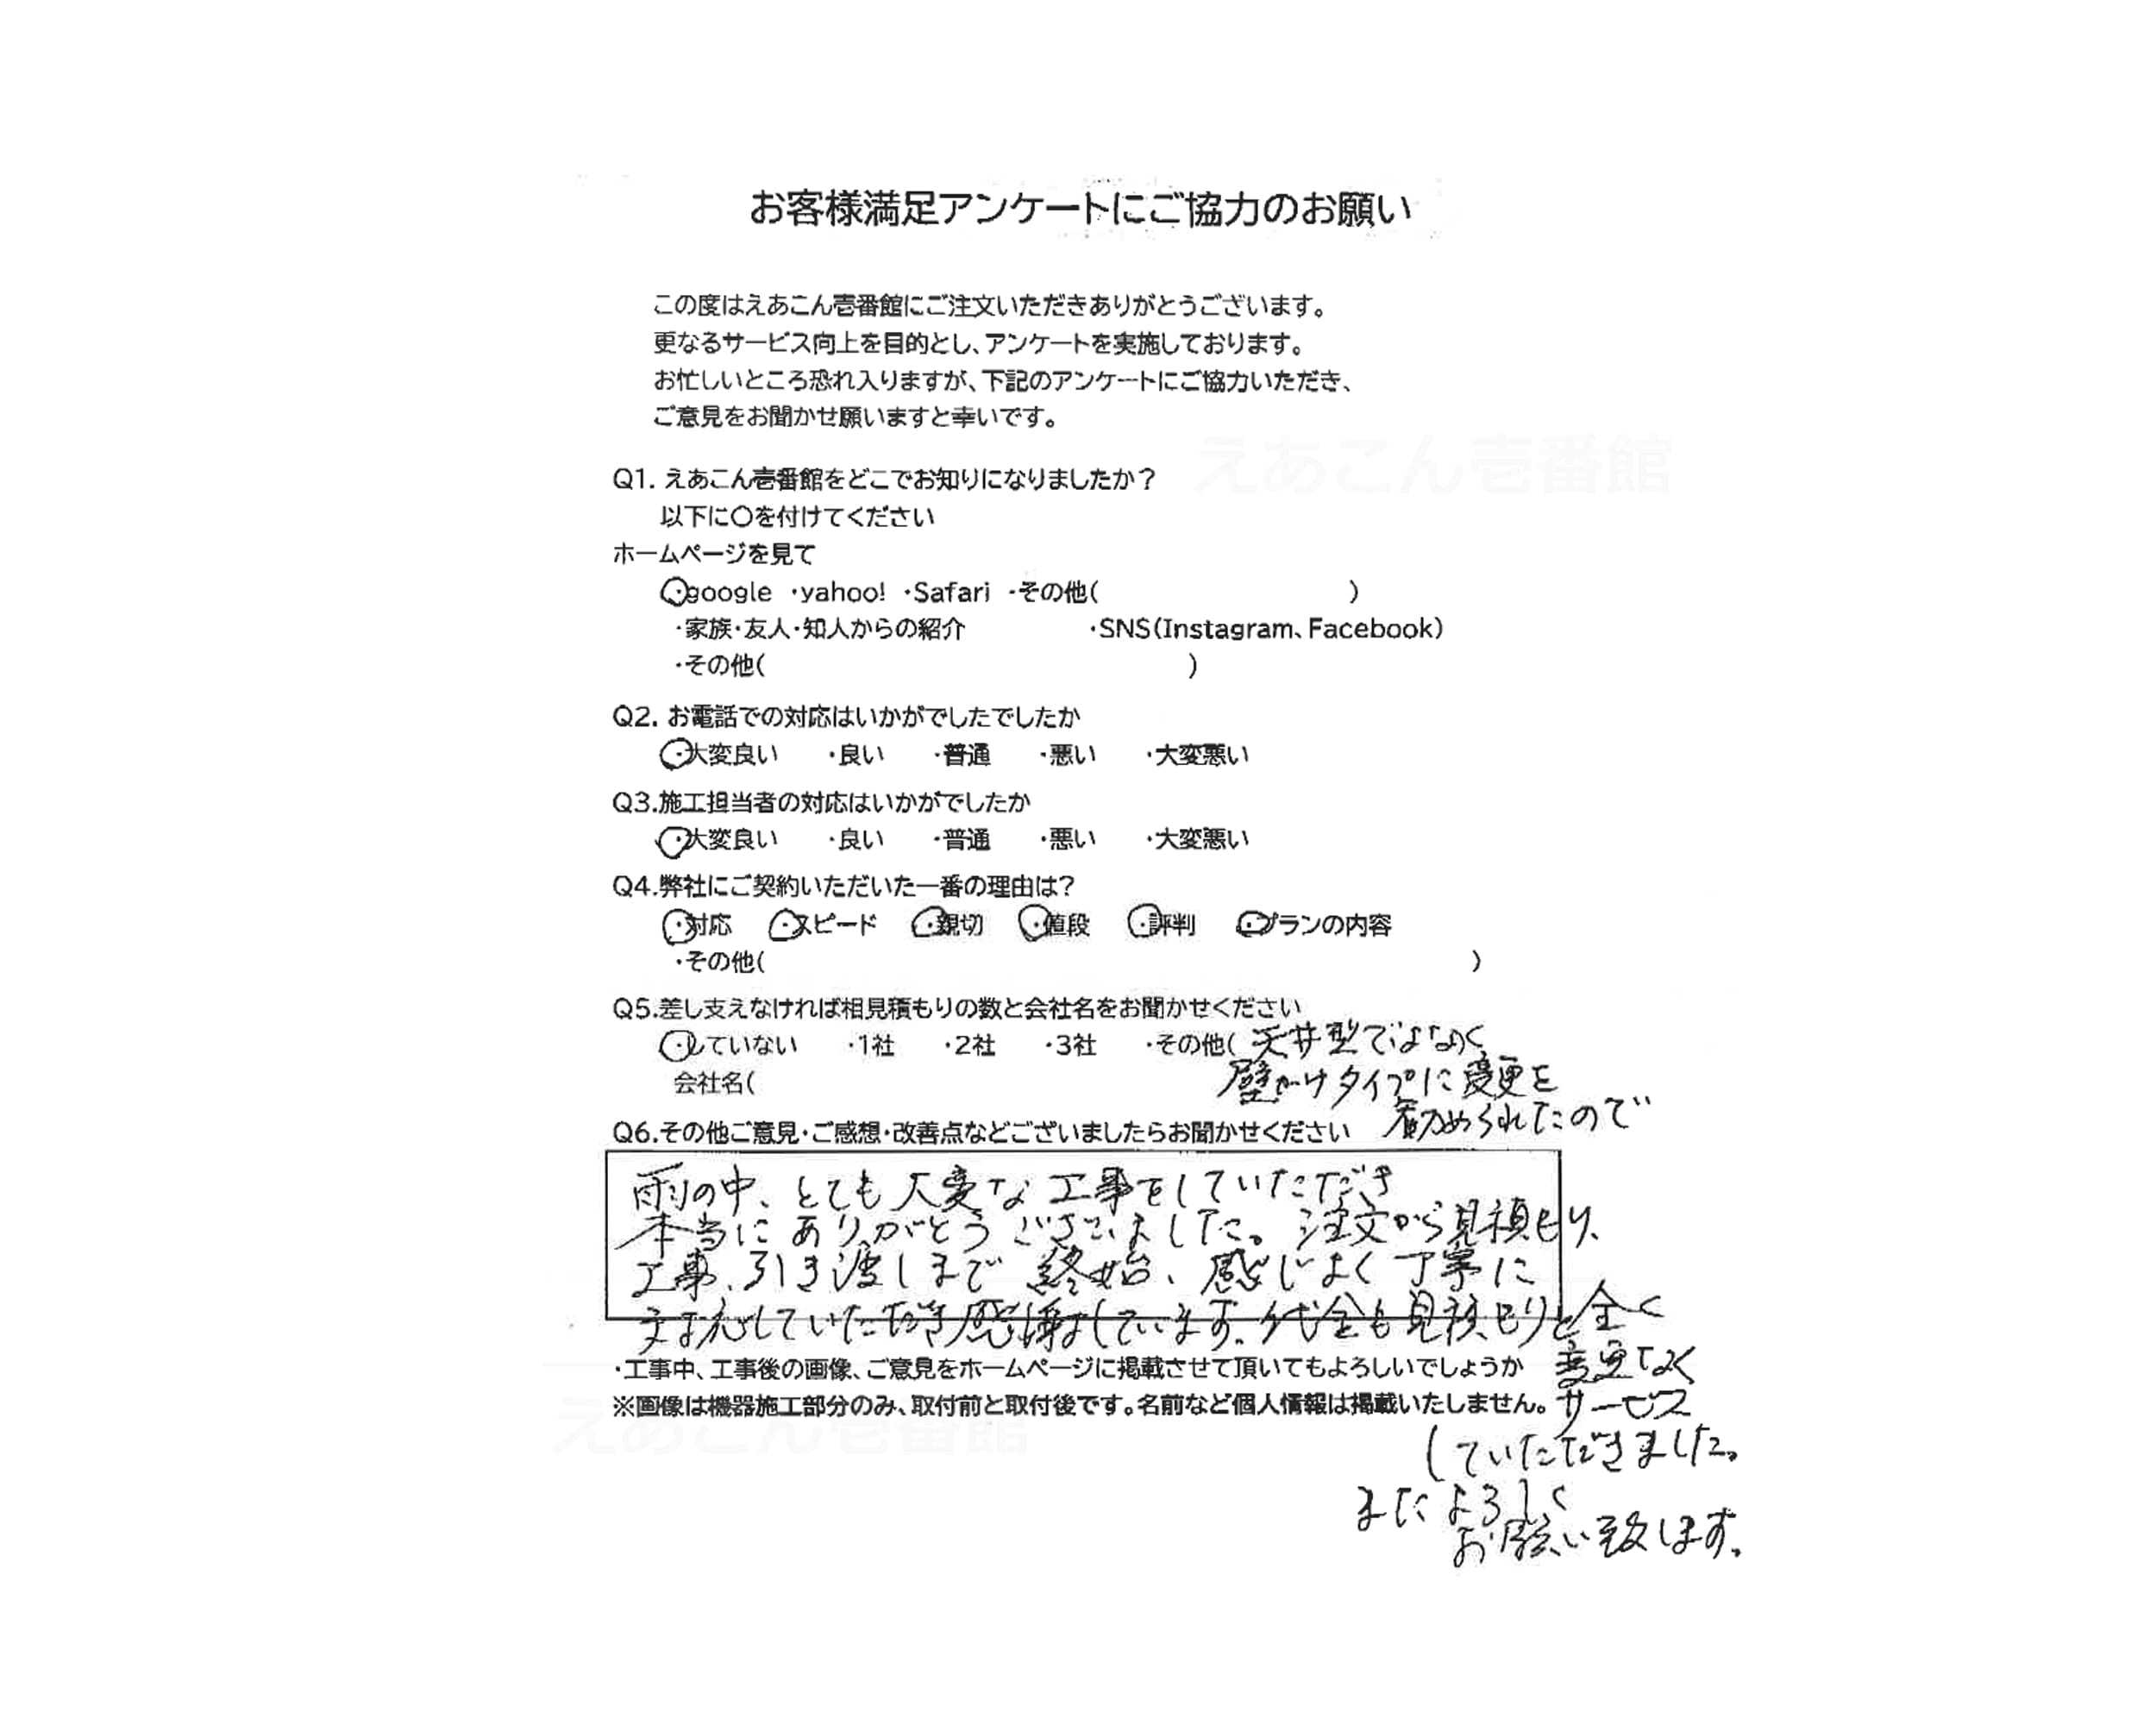 お客様満足アンケートにご協力のお願い
この度はえあこん壱番館にご注文いただきありがとうございます。
更なるサービス向上を目的とし、アンケートを実施しております。
お忙しいところ恐れ入りますが、下記のアンケートにご協力いただき、
ご意見をお聞かせ願いますと幸いです。
えあこん壱番館
Q1. えあこん壱番館をどこでお知りになりましたか？
以下に〇を付けてください
ホームページを見て
・google ・yahoo! ・Safari ・その他( )
・家族・友人・知人からの紹介 ・SNS(Instagram、Facebook)
・その他( )
Q2. お電話での対応はいかがでしたでしたか
・大変良い ・良い ・普通 ・悪い ・大変悪い
Q3.施工担当者の対応はいかがでしたか
・大変良い ・良い ・普通 ・悪い ・大変悪い
Q4.弊社にご契約いただいた一番の理由は？
・対応 ・スピード ・親切 ・値段 ・評判 ・プランの内容
・その他( )
Q5.差し支えなければ相見積もりの数と会社名をお聞かせください
・していない ・1社 ・2社 ・3社 ・その他( 天井型ではなく
会社名( 壁かけタイプに変更を
勧められたので
Q6.その他ご意見・ご感想・改善点などございましたらお聞かせください
雨の中、とても大変な工事をしていただき
本当にありがとうございました。注文から見積もり、
工事、引き渡しまで終始、感じよく丁寧に
対応していただき感謝しています。代金も見積もりと全く
変更なく
サービス
していただきました。
またよろしく
お願い致します。
・工事中、工事後の画像、ご意見をホームページに掲載させて頂いてもよろしいでしょうか
※画像は機器施工部分のみ、取付前と取付後です。名前など個人情報は掲載いたしません。
えあこん壱番館